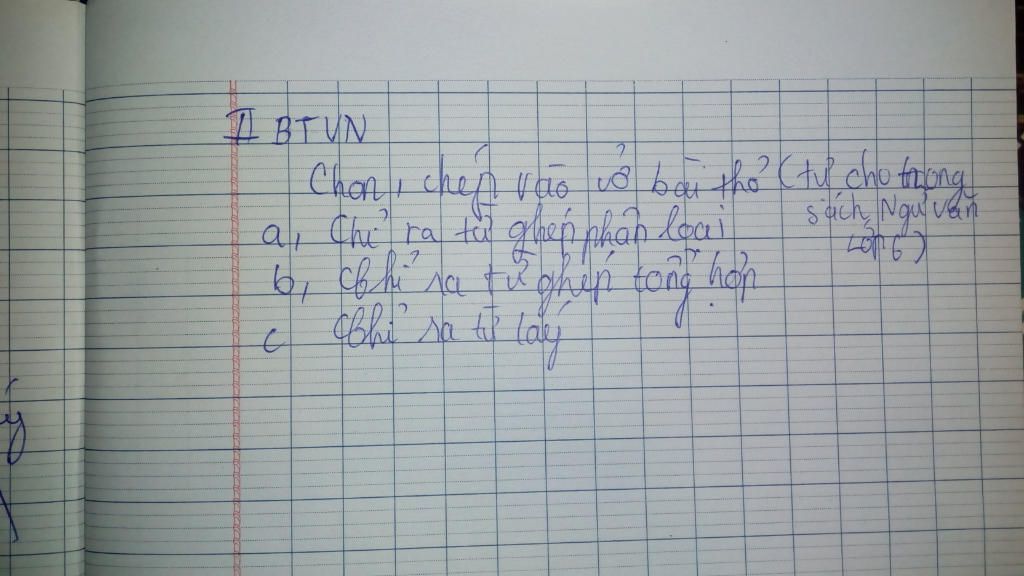 II BTVN
Chọn, chép vào vở bài thơ (tự cho trong
sách Ngữ văn
lớp 6)
a, Chỉ ra từ ghép phân loại
b, Chỉ ra từ ghép tổng hợp
c Chỉ ra từ láy